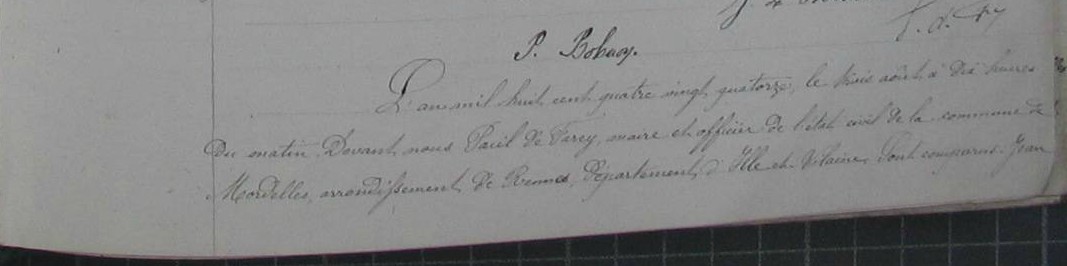 P. Bobuoy.
L'an mil huit cent quatre vingt quatorze, le trois août à dix heures
Du matin. Devant nous Paul de Farcy, maire et officier de l'état civil de la commune de
Mordelles, arrondissement de Rennes, département d'Ille et Vilaine, Sont comparus Jean